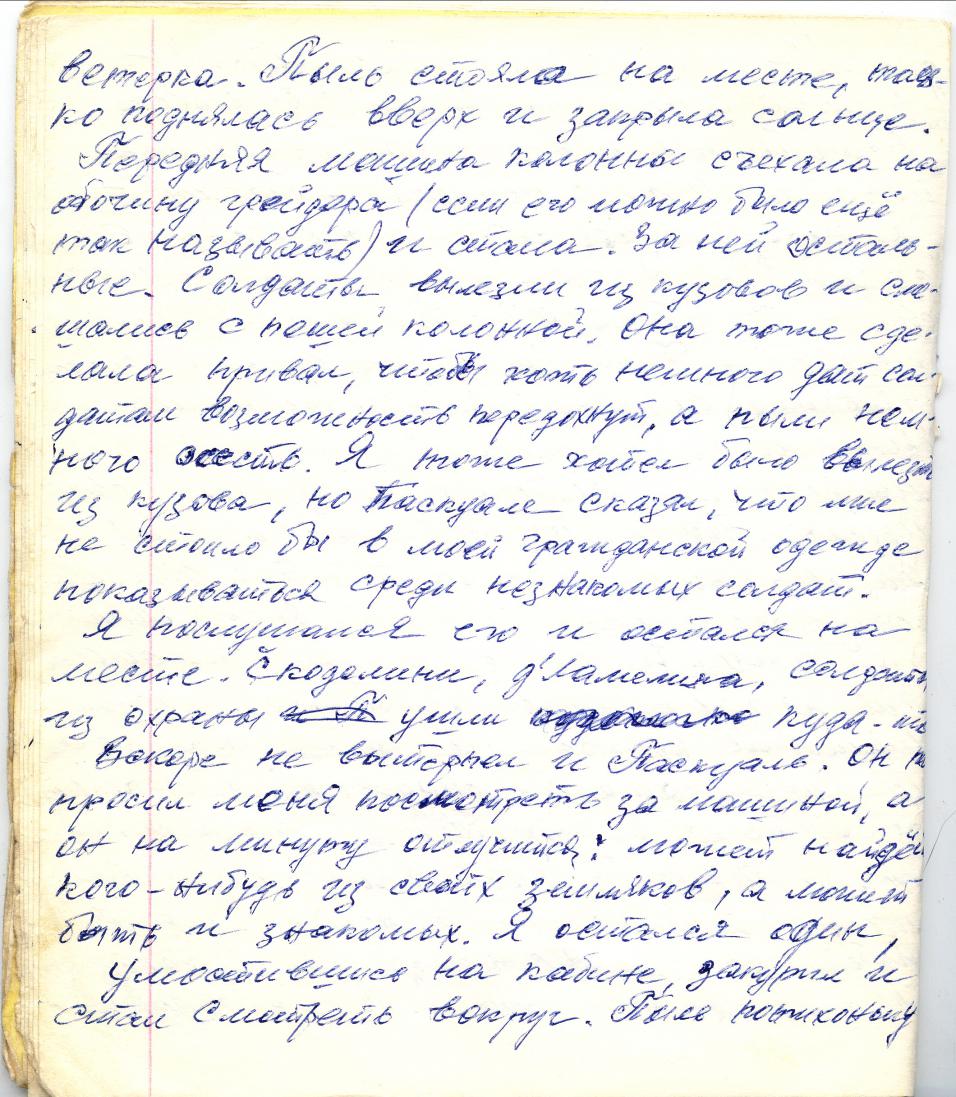 ветерка. Пыль стояла на месте, толь-
ко поднялась вверх и закрыла солнце.
Передняя машина колонны съехала на
обочину грейдера (если его можно было ещё
так называть) и стала. За ней осталь-
ные. Солдаты вылезли из кузовов и сме-
шались с пешей колонной. Она тоже сде-
лала привал, чтобы хоть немного дат сол-
датам возможность передохнут, а пыли нем-
ного осесть. Я тоже хотел было вылезти
из кузова, но Паскуале сказал, что мне
не стоило бы в моей гражданской одежде
показываться среди незнакомых солдат.
Я послушался его и остался на
месте. Скозолини, д'Ламелма, солдаты
из охраны ушли куда-то
Вскоре не вытерпел и Паскуаль. Он по
просил меня посмотреть за машиной, а
он на минуту отлучится: может найдёт
кого-нибудь из своих земляков, а может
быть и знакомых. Я остался один,
умостившись на кабине, закурил и
стал смотреть вокруг. Пыль потихоньку